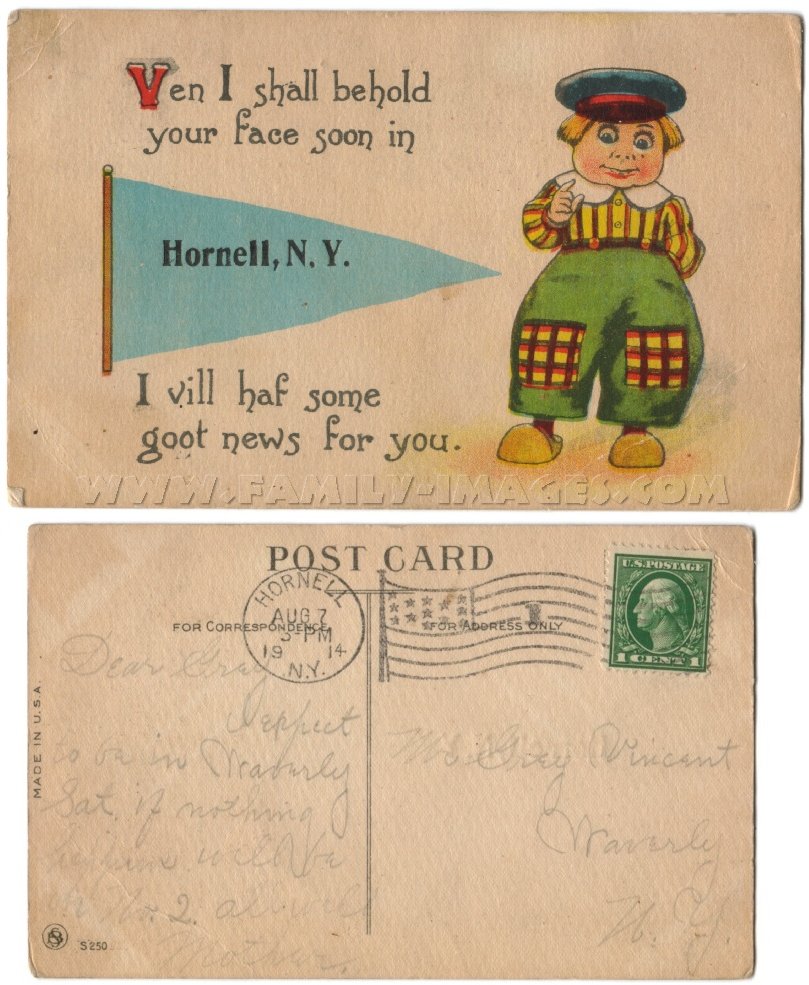 Ven I shall behold
your face soon in
Hornell, N. Y.
I vill haf some
goot news for you.
WWW.FAMILY-IMAGES.COM
POST CARD
HORNELL
AUG 7
3-PM
19 14
N.Y.
U.S. POSTAGE
1 CENT 1
FOR CORRESPONDENCE
FOR ADDRESS ONLY
MADE IN U.S.A.
Dear Gray
I expect
to be in Waverly
Sat. if nothing
will be
on No. 2. all well
Mother.
Gray Vincent
Waverly
N. Y.
S 250